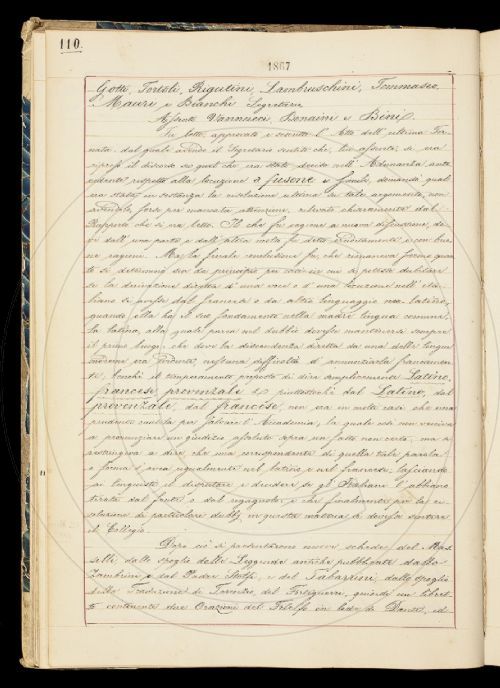 110.
1867
Gotti, Tortoli, Rigutini, Lambruschini, Tommaseo,
Mauri e Bianchi Segretario
Assenti Vannucci, Bonaini e Bini.
Fu letto, approvato e l'Atto dell'ultima Tor-
nata, dal quale avendo il Segretario sentito che, lui assente, si era
ripreso il discorso su quel che era stato deciso nell'Adunanza ante-
cedente rispetto alla locuzione a fusone e simili, domandò qual
era stata in sostanza la risoluzione ultima su tale argomento, non
avendola, forse per mancata attenzione, rilevata chiaramente dal
Rapporto che si era letto. Il che fu cagione a nuova discussione, do-
ve dall'una parte e dall'altra molto fu detto e con buo-
ne ragioni. Ma la finale conclusione fu, che rimaneva fermo quan-
to si determinò sin da principio per casi in cui si potesse dubitare
se la derivazione diretta d'una voce o d'una locuzione nell'ita-
liano si avesse dal francese o da altro linguaggio neo latino,
quando ella ha il suo fondamento nella madre lingua comune,
la latina, alla quale parea nel dubbio doversi mantenere sempre
il primo luogo: che dove la discendenza diretta da una delle lingue
era evidente, nessuna difficoltà d'annunziarla francamen-
te, benchè il temperamento proposto di dire semplicemente Latino,
francese, provenzale &c piuttostochè dal Latino, dal
provenzale, dal francese, non era in molti casi che una
prudente cautela per salvare l'Accademia, la quale così non veniva
a pronunziare un giudizio assoluto sopra un fatto non certo, ma si
restringeva a dire che una corrispondente di quella tale parola
o forma c'era egualmente nel latino e nel francese, lasciando
ai linguisti il discutere e decidere se gl'Italiani l'abbiano
tirata dal fonte o dal rigagnolo; e che finalmente per la ri-
soluzione di particolari dubbj in questa materia si dovesse sentire
il Collegio.
Dopo ciò si presentarono nuove schede, del Mas-
selli, dallo spoglio delle Leggende antiche pubblicate dallo
Zambrini e dal Padre e del Tabarrini, dallo spoglio
della Traduzione di Terenzio, del Forteguerri, quindi un libret-
to contenente due Orazioni del Filelfo in lode di Dante, ed